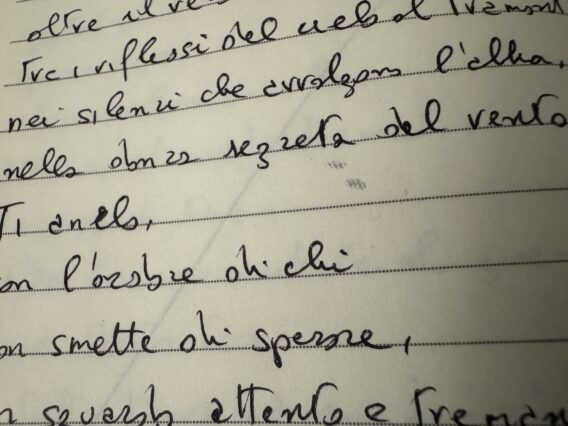 oltre il ve
tra i riflessi del cielo al tramont
nei silenzi che avvolgono l'alba,
nella danza segreta del vento
Ti anelo,
on l'ardore di chi
on smette di sperare,
sguardo attento e treman